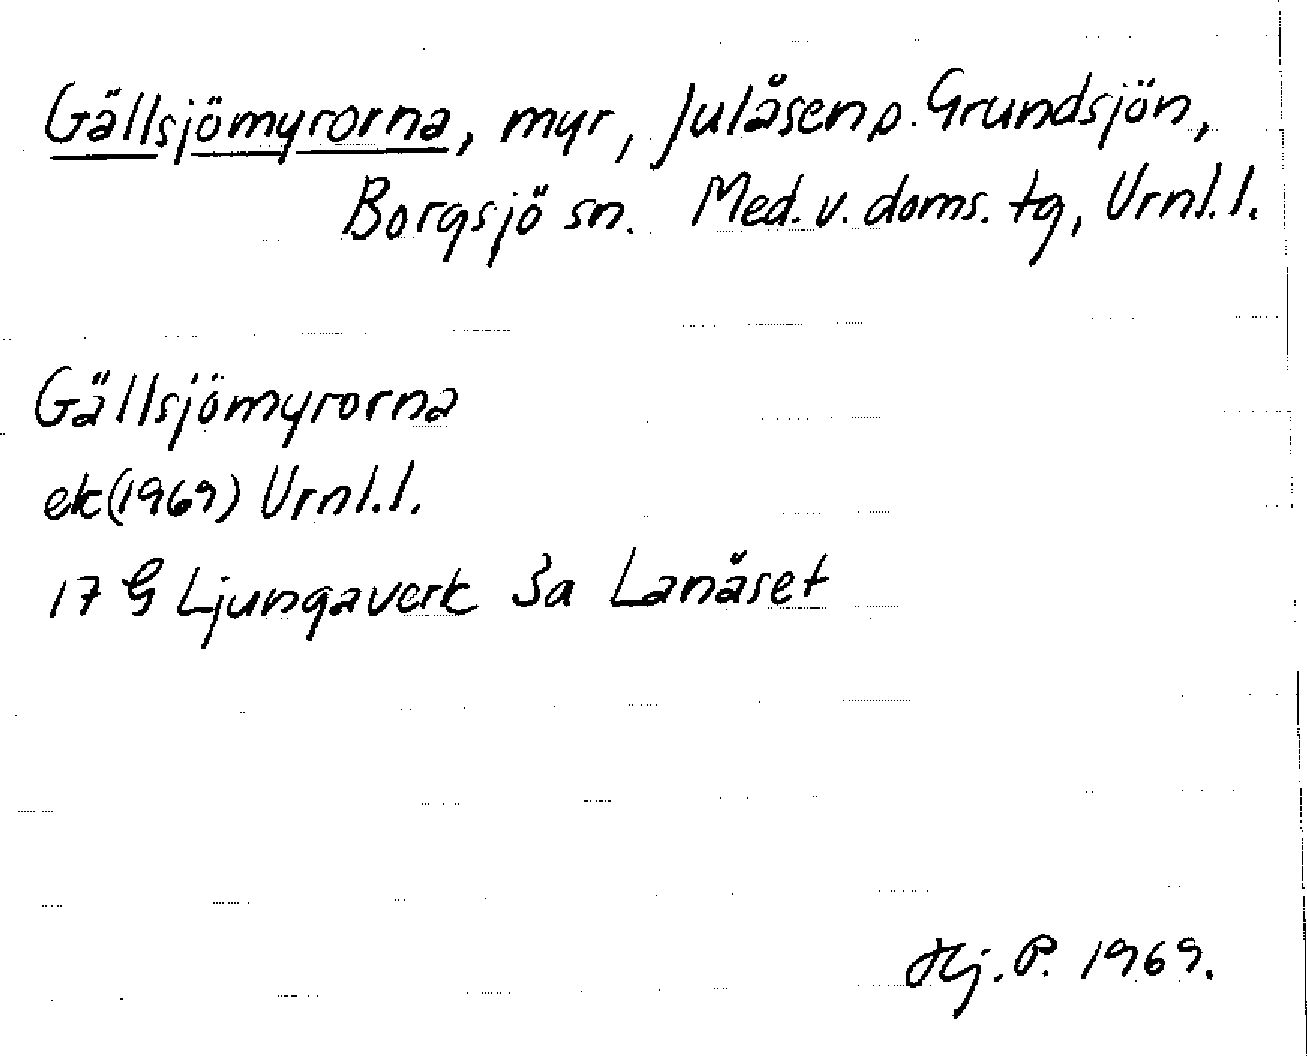 Gällsjömyrorna, myr, Julåsen p. Grundsjön,
Borgsjö sn. Med. v. doms. tg, Vrnl. l.
Gällsjömyrorna
ek (1969) Vrnl. l.
17 G Ljungaverk 3a Lanåset
Hj. P. 1969.